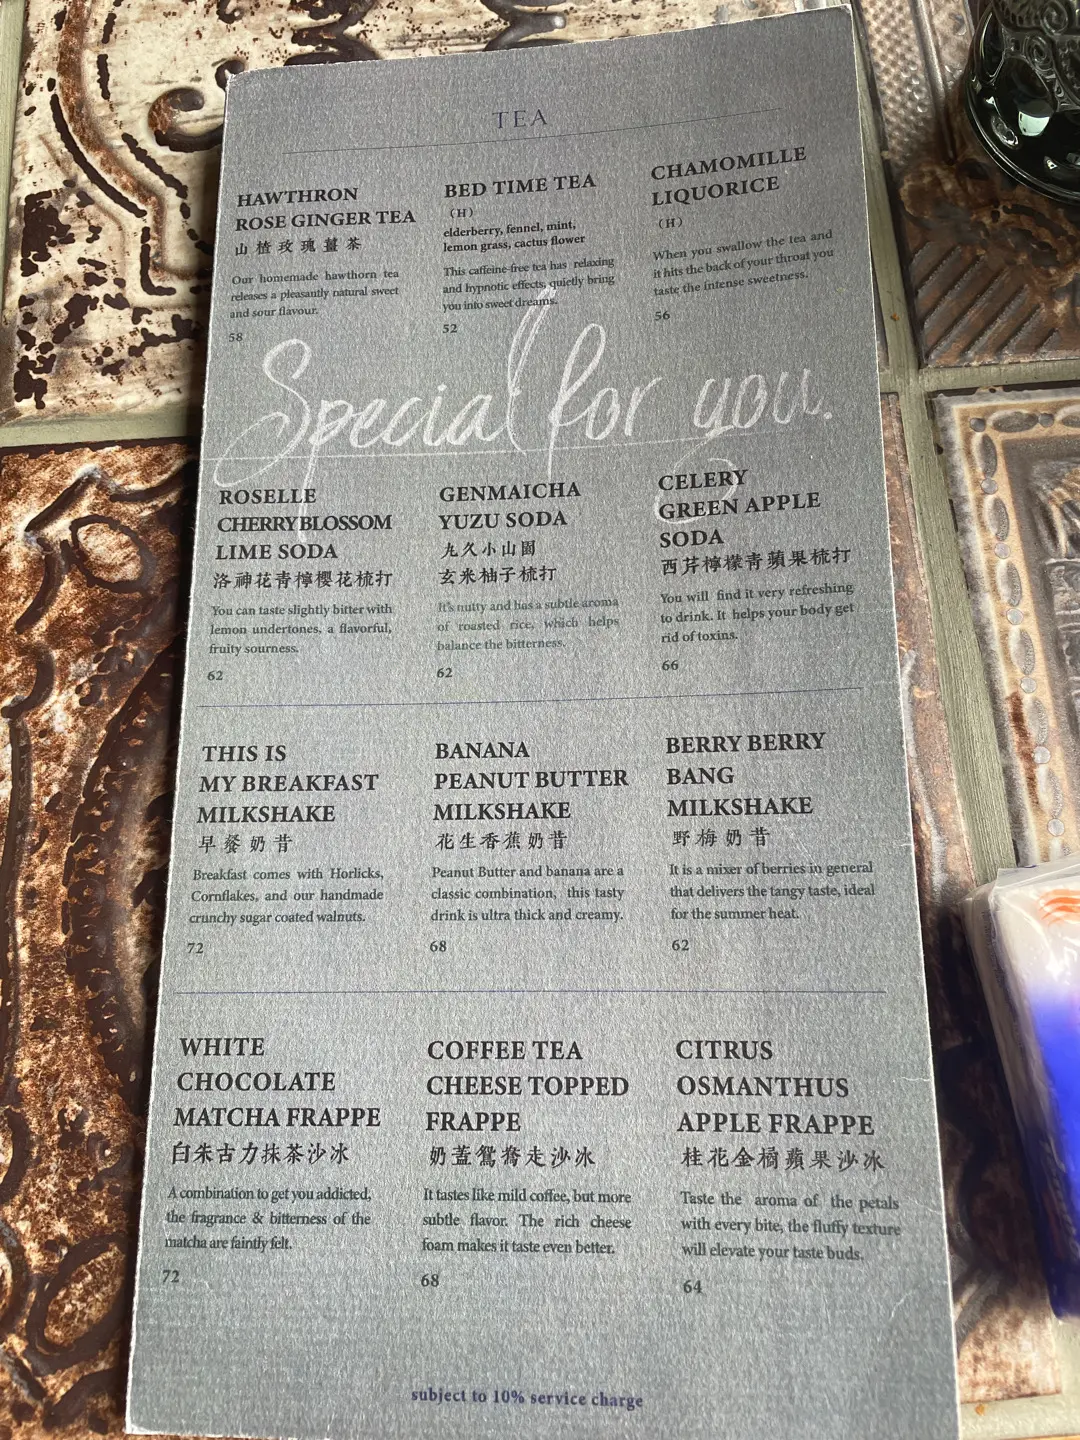 TEA
HAWTHRON
ROSE GINGER TEA
山楂玫瑰薑茶
Our homemade hawthorn tea
releases a pleasantly natural sweet
and sour flavour.
58
BED TIME TEA
(H)
elderberry, fennel, mint,
lemon grass, cactus flower
This caffeine-free tea has relaxing
and hypnotic effects, quietly bring
you into sweet dreams.
52
CHAMOMILLE
LIQUORICE
(H)
When you swallow the tea and
it hits the back of your throat you
taste the intense sweetness.
56
Special for you.
ROSELLE
CHERRY BLOSSOM
LIME SODA
洛神花青檸櫻花梳打
You can taste slightly bitter with
lemon undertones, a flavorful,
fruity sourness.
62
GENMAICHA
YUZU SODA
丸久小山園
玄米柚子梳打
It's nutty and has a subtle aroma
of roasted rice, which helps
balance the bitterness.
62
CELERY
GREEN APPLE
SODA
西芹檸檬青蘋果梳打
You will find it very refreshing
to drink. It helps your body get
rid of toxins.
66
THIS IS
MY BREAKFAST
MILKSHAKE
早餐奶昔
Breakfast comes with Horlicks,
Cornflakes, and our handmade
crunchy sugar coated walnuts.
72
BANANA
PEANUT BUTTER
MILKSHAKE
花生香蕉奶昔
Peanut Butter and banana are a
classic combination, this tasty
drink is ultra thick and creamy.
68
BERRY BERRY
BANG
MILKSHAKE
野梅奶昔
It is a mixer of berries in general
that delivers the tangy taste, ideal
for the summer heat.
62
WHITE
CHOCOLATE
MATCHA FRAPPE
白朱古力抹茶沙冰
A combination to get you addicted,
the fragrance & bitterness of the
matcha are faintly felt.
72
COFFEE TEA
CHEESE TOPPED
FRAPPE
奶蓋鴛鴦走沙冰
It tastes like mild coffee, but more
subtle flavor. The rich cheese
foam makes it taste even better.
68
CITRUS
OSMANTHUS
APPLE FRAPPE
桂花金橘蘋果沙冰
Taste the aroma of the petals
with every bite, the fluffy texture
will elevate your taste buds.
64
subject to 10% service charge